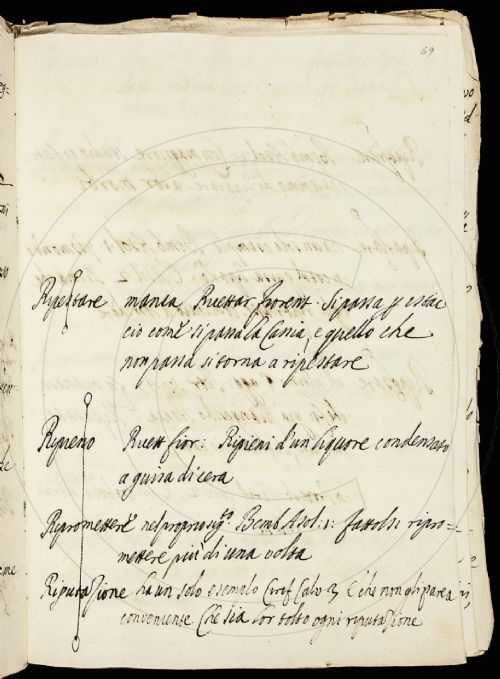 69
Ripestare manca Ricettar. fiorent. Si passa p estac
cio com̃e si passa la Cassia, e quello che
non passa si torna a ripestare
Ripieno Ricett fior: Ripieni d'un liquore condensato
a guisa di cera
Ripromettere nel proprio sig.to Bemb Asol: 1: fattolsi ripro=
mettere più di una volta
Riputazione ha un solo esemplo Circf Calv 3, E che non gli parea
conveniente Che sia lor tolto ogni riputazione